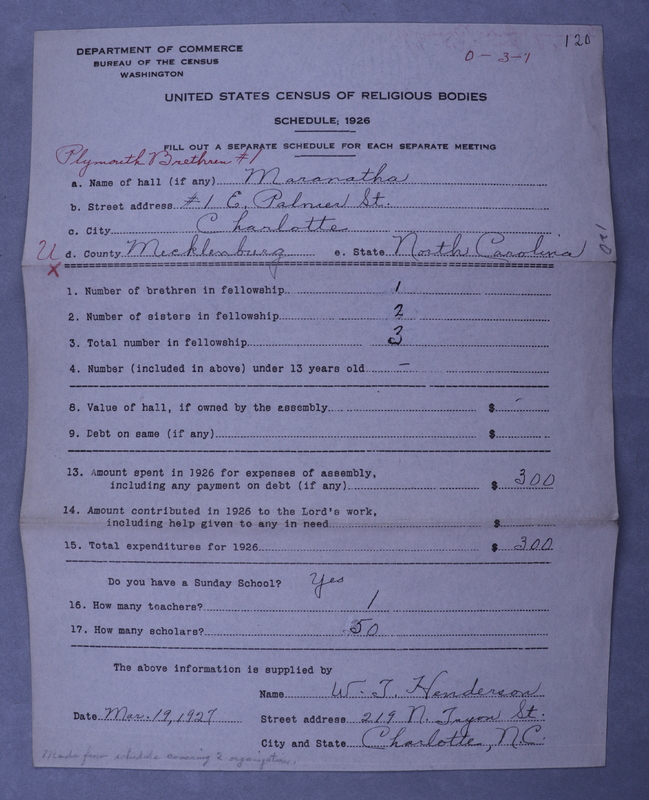 DEPARTMENT OF COMMERCE
BUREAU OF THE CENSUS
WASHINGTON
0-3-7
120
UNITED STATES CENSUS OF RELIGIOUS BODIES
SCHEDULE, 1926
FILL OUT A SEPARATE SCHEDULE FOR EACH SEPARATE MEETING
Plymouth Brethren #1
a. Name of hall (if any) Maranatha
b. Street address #1 E. Palmer St.
c. City Charlotte
U
d. County Mecklenburg e. State North Carolina
x
1. Number of brethren in fellowship 1
2. Number of sisters in fellowship 2
3. Total number in fellowship 3
4. Number (included in above) under 13 years old —
8. Value of hall, if owned by the assembly $ -
9. Debt on same (if any) $
13. Amount spent in 1926 for expenses of assembly,
including any payment on debt (if any) $ 300
14. Amount contributed in 1926 to the Lord's work,
including help given to any in need $
15. Total expenditures for 1926 $ 300
Do you have a Sunday School? Yes
16. How many teachers? 1
17. How many scholars? 50
The above information is supplied by
Name W. T. Henderson
Date Mar. 19, 1927 Street address 219 N. Tryon St.
City and State Charlotte, N.C.
Made from schedule covering 2 organizations.